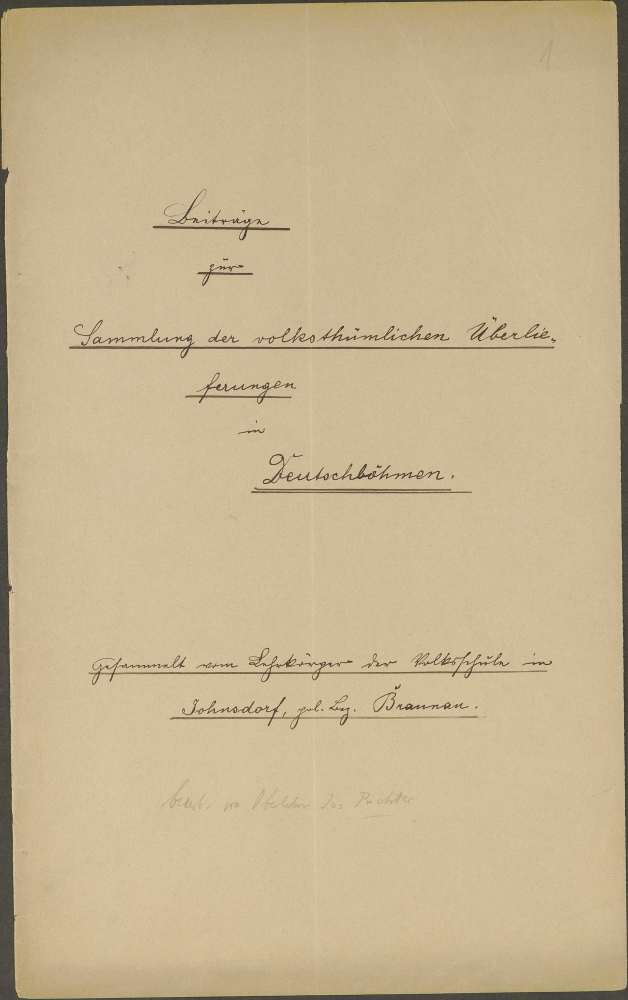 1
Beiträge
zur
Sammlung der volksthümlichen Überlie-
ferungen
in
Deutschböhmen.
Gesammelt vom Lehrkörper der Volksschule in
Johnsdorf, pol. Bez. Braunau.
bearb. von Oberlehrer Jos Richter